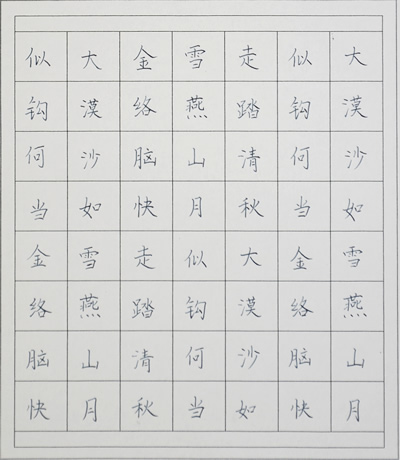 大漠沙如雪燕山月
似钩何当金络脑快
走踏清秋大漠沙如
雪燕山月似钩何当
金络脑快走踏清秋
大漠沙如雪燕山月
似钩何当金络脑快